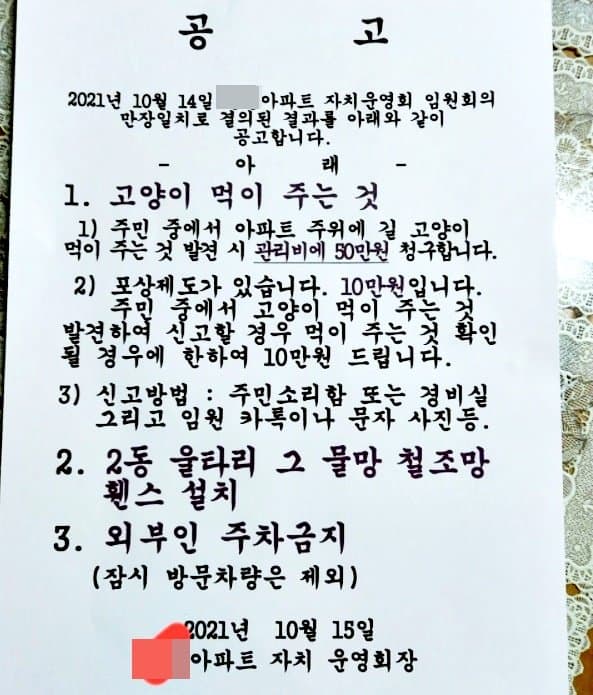 공 고
2021년 10월 14일 아파트 자치운영회 임원회의
만장일치로 결의된 결과를 아래와 같이
공고합니다.
- 아 래 -
1. 고양이 먹이 주는 것
1) 주민 중에서 아파트 주위에 길 고양이
먹이 주는 것 발견 시 관리비에 50만원 청구합니다.
2) 포상제도가 있습니다. 10만원입니다.
주민 중에서 고양이 먹이 주는 것
발견하여 신고할 경우 먹이 주는 것 확인
될 경우에 한하여 10만원 드립니다.
3) 신고방법 : 주민소리함 또는 경비실
그리고 임원 카톡이나 문자 사진등.
2. 2동 울타리 그 물망 철조망
휀스 설치
3. 외부인 주차금지
(잠시 방문차량은 제외)
2021년 10월 15일
아파트 자치 운영회장